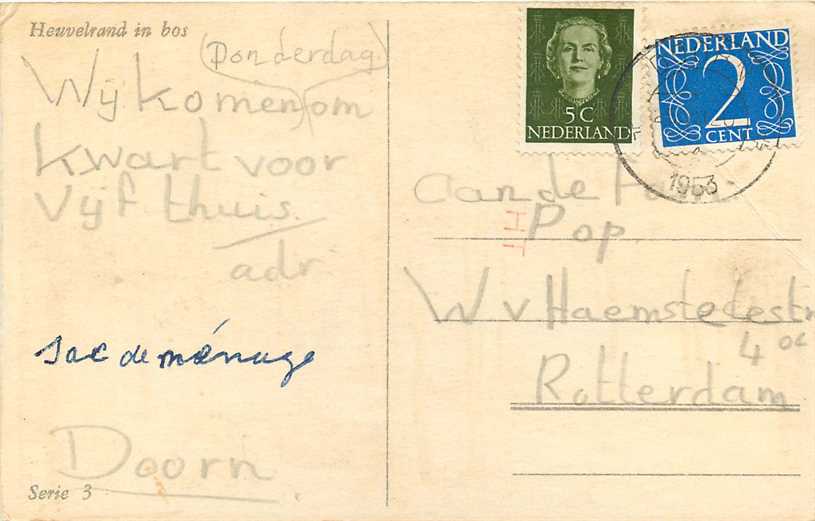 Heuvelrand in bos
(Donderdag)
Wij komen om
kwart voor
vijf thuis.
adr
Jac de ménage
Doorn
Serie 3
5 C
NEDERLAND
NEDERLAND
2
CENT
1953
aan de Fam.
H Pop.
W v Haemstedestr
4 oc
Rotterdam